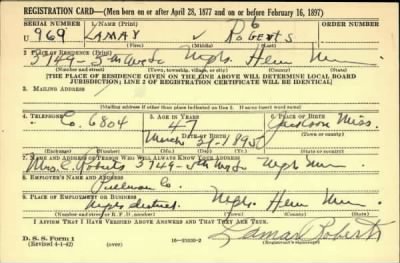 REGISTRATION CARD—(Men born on or after April 28, 1877 and on or before February 16, 1897)
SERIAL NUMBER 1. NAME (Print) ORDER NUMBER
U 969 LAMAR ROBERTS
(First) (Middle) (Last)
2. PLACE OF RESIDENCE (Print)
3749-5th Ave So Mpls. Henn Minn
(Number and street) (Town, township, village, or city) (County) (State)
[THE PLACE OF RESIDENCE GIVEN ON THE LINE ABOVE WILL DETERMINE LOCAL BOARD
JURISDICTION; LINE 2 OF REGISTRATION CERTIFICATE WILL BE IDENTICAL]
3. MAILING ADDRESS
[Mailing address if other than place indicated on line 2. If same insert word same]
4. TELEPHONE 5. AGE IN YEARS 6. PLACE OF BIRTH
Co. 6804 47 Jackson
DATE OF BIRTH (Town or county)
March 1895 Miss.
(Exchange) (Number) (Mo.) (Day) (Yr.) (State or country)
7. NAME AND ADDRESS OF PERSON WHO WILL ALWAYS KNOW YOUR ADDRESS
Mrs. C. Roberts 3749-5th Ave So Mpls Minn
8. EMPLOYER'S NAME AND ADDRESS
Pullman Co.
9. PLACE OF EMPLOYMENT OR BUSINESS
Mpls district Mpls. Henn Minn.
(Number and street or R. F. D. number) (Town) (County) (State)
I AFFIRM THAT I HAVE VERIFIED ABOVE ANSWERS AND THAT THEY ARE TRUE.
D. S. S. Form 1
(Revised 4-1-42) (over) Lamar Roberts
(Registrant's signature)